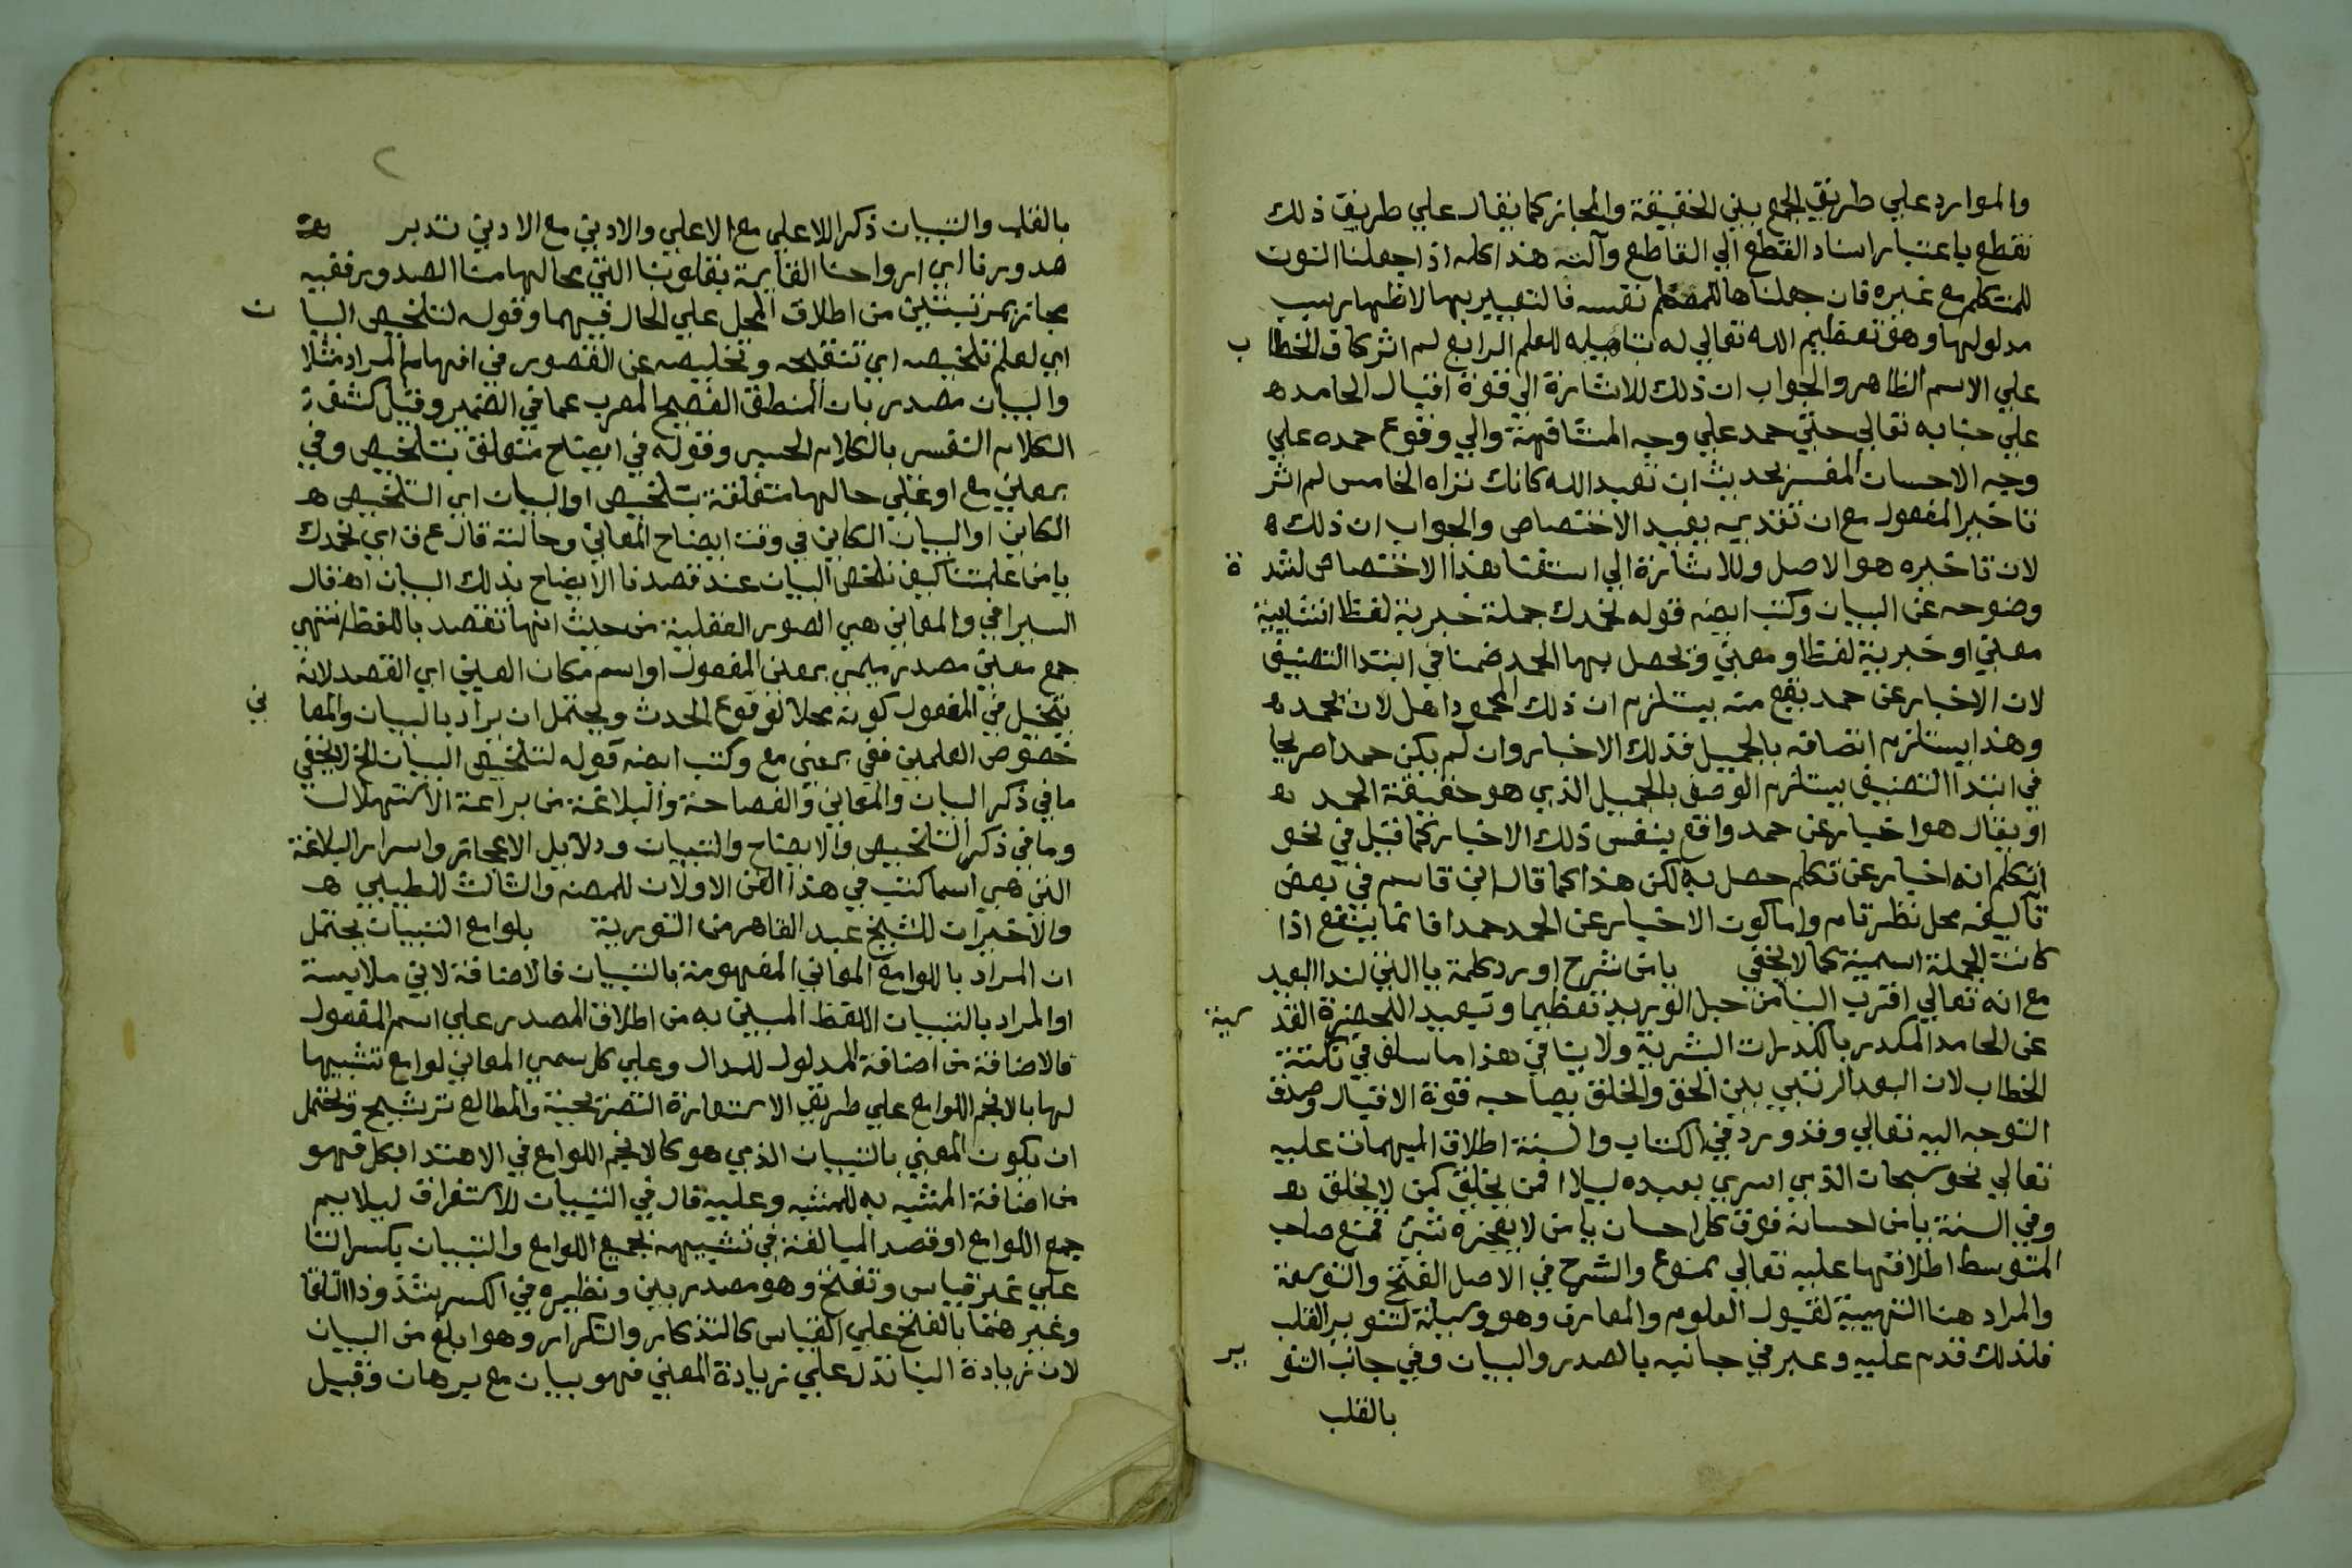 والموارد علي طريقي الجمع بين الحقيقة والمجاز كما يقال علي طريق ذلك
نقطع باعتبار اسناد القطع الي القاطع وآلته هذا كله اذا جعلنا النون
للمتكلم مع غيره فان جعلناها للمعظم نفسه فالتعبير بها لاظهار سبب
مدلولها وهو تعظيم الله تعالي له بتاهيله للعلم الرابع لم اثر كاف الخطاب
علي الاسم الظاهر والجواب ان ذلك للاشارة الي قوة اقبال الحامد ه
علي جنابه تعالي حتي حمد علي وجه المشافهة والي وقوع حمده علي
وجه الاحسان المفسر بحديث ان تعبد الله كانك تراه الخامس لم اثر
تاخير المفعول مع ان تقديمه يفيد الاختصاص والجواب ان ذلك ه
لان تاخيره هو الاصل وللاشارة الي استغنا هذا الاختصاص لشدة
وضوحه عن البيان وكتب ايضه قوله نحمدك جملة خبرية لفظا انشايية
معني او خبرية لفظا ومعني ويحصل بها الحمد ضمنا في ابتدا التصنيف
لان الاخبار عن حمد يقع منه يستلزم ان ذلك المحمود اهل لان يحمد ه
وهذا يستلزم اتصافه بالجميل فذلك الاخبار وان لم يكن حمدا صريحا
في ابتدا التصنيف يستلزم الوصف بالجميل الذي هو حقيقة الحمد ه
او يقال هو اخبار عن حمد واقع بنفس ذلك الاخبار كما قيل في نحو
اتكلم انه اخبار عن تكلم حصل به لكن هذا كما قال ابن قاسم في بعض
تآليفه محل نظر تام واما كون الاخبار عن الحمد حمدا فانما ينفع اذا
كانت الجملة اسمية كما لا يخفي يا من شرح اورد كلمة يا التي لندا البعيد
مع انه تعالي اقرب الينا من حبل الوريد تعظيما وتبعيدا للحضرة القدسية
عن الحامد المكدر بالكدرات البشرية ولا ينافي هذا ما سلف في نكتة
الخطاب لان البعد الرتبي بين الحق والخلق يصاحبه قوة الاقبال وصدق
التوجه اليه تعالي وقد ورد في الكتاب والسنة اطلاق المبهمات عليه
تعالي نحو سبحان الذي اسري بعبده ليلا افمن يخلق كمن لا يخلق ه
وفي السنة يا من احسانه فوق كل احسان يا من لا يعجزه شئ فمنع صاحب
المتوسط اطلاقها عليه تعالي ممنوع والشرح في الاصل الفتح والتوسعة
والمراد هنا التهيية لقبول العلوم والمعارف وهو وسيلة لتنوير القلب
فلذلك قدم عليه وعبر في جانبه بالصدر والبيان وفي جانب التنوير
بالقلب
٢
بالقلب والتبيان ذكرا للاعلي مع الاعلي والادني مع الادني تدبر
صدورنا اي ارواحنا القايمة بقلوبنا التي محالها منا الصدور ففيه
مجاز بمرتبتين من اطلاق المحل علي الحال فيهما وقوله لتلخيص البيان
اي لعلم تلخيصه اي تنقيحه وتخليصه عن القصور في افهام المراد مثلا
والبيان مصدر بان المنطق الفصيح المعرب عما في الضمير وقيل كشف
الكلام النفسي بالكلام الحسي وقوله في ايضاح متعلق بتلخيص وفي
بمعني مع او علي حالها متعلقة بتلخيص او البيان اي التلخيص ه
الكاين او البيان الكاين في وقت ايضاح المعاني وحالته قال ع ق اي نحمدك
يا من علمتنا كيف نلخص البيان عند قصدنا الايضاح بذلك البيان اه قال
السيرامي والمعاني هي الصور العقلية من حيث انها تقصد باللفظ انتهي
جمع معني مصدر ميمي بمعني المفعول او اسم مكان العين اي القصد لانه
يتخيل في المفعول كونه محلا لوقوع الحدث ويحتمل ان يراد بالبيان والمعاني
خصوص العلمين ففي بمعني مع وكتب ايضه قوله لتلخيص البيان الخ لا يخفي
ما في ذكر البيان والمعاني والفصاحة والبلاغة من براعة الاستهلال
وما في ذكر التلخيص والايضاح والتبيان ودلايل الاعجاز واسرار البلاغة
التي هي اسما كتب في هذا الفن الاولان للمصنه والثالث للطيبي ه
والاخيران للشيخ عبد القاهر من التورية بلوامع التبيان يحتمل
ان المراد باللوامع المعاني المفهومة بالتبيان فالاضافة لادني ملابسة
او المراد بالتبيان اللفظ المبين به من اطلاق المصدر علي اسم المفعول
فالاضافة من اضافة المدلول للدال وعلي كل سمي المعاني لوامع تشبيها
لها بالانجم اللوامع علي طريق الاستعارة التصريحية والمطالع ترشيح ويحتمل
ان يكون المعني بالتبيان الذي هو كالانجم اللوامع في الاهتدا بكل فهو
من اضافة المشبه به للمشبه وعليه قال في التبيان للاستغراق ليلايم
جمع اللوامع او قصد المبالغة في تشبيهه بجميع اللوامع والتبيان بكسر التا
علي غير قياس وتفتح وهو مصدر بين ونظيره في الكسر بشذوذ التلقا
وغيرهما بالفتح علي القياس كالتذكار والتكرار وهو ابلغ من البيان
لان زيادة البنا تدل علي زيادة المعني فهو بيان مع برهان وقيل